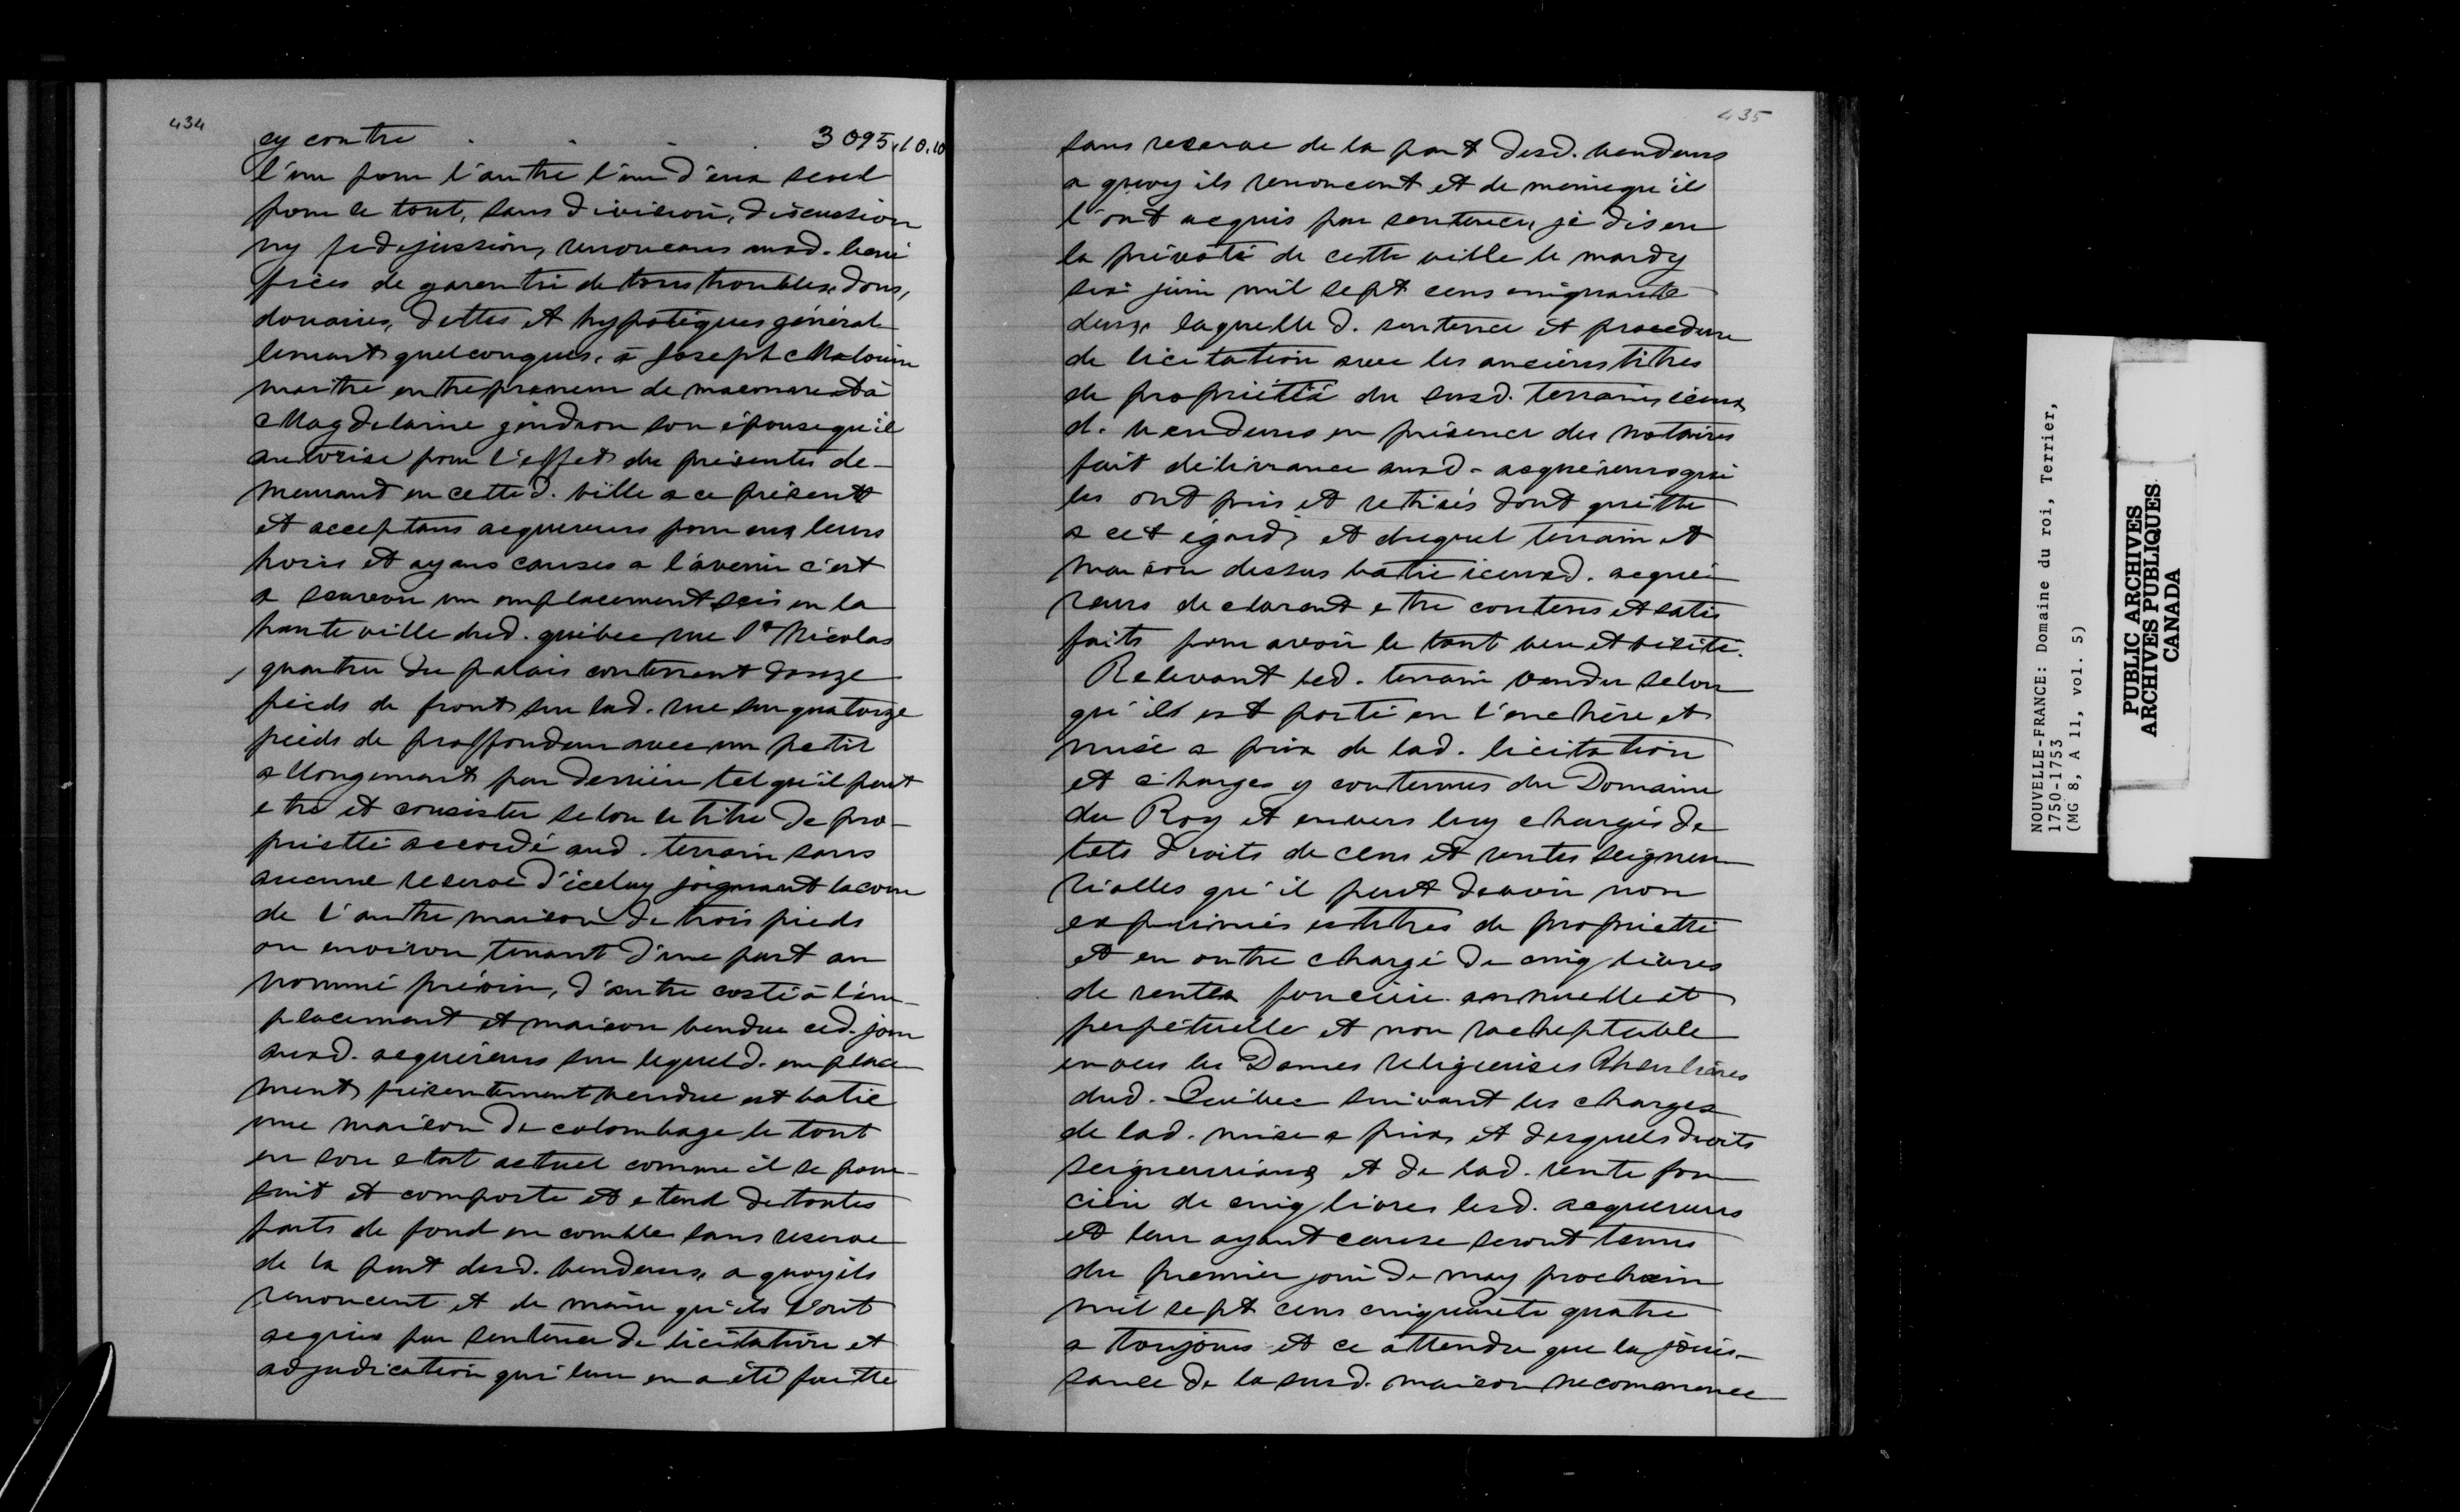 434
cy contre . . . . 3 095.10.10
l'un pour l'autre l'un d'eux seul
pour le tout, sans division, discussion
ny fidejussion, renonceans ausd. béné
fices de garentie de tous troubles, dons,
douaires, dettes et hypotèques général
lement quelconques, à Joseph Malouin
maitre entrepreneur de maconne et à
Magdelaine gendron son épouse qu'il
autorise pour l'effet des présentes de-
meurant en cette d. ville a ce présent
et acceptans acquereurs pour eux leurs
hoirs et ayans causes a l'avenir c'est
a scavoir un emplacement scis en la
haute ville dud. québec rue St Nicolas
quartier du palais contenant douze
pieds de front sur lad. rue sur quatorze
pieds de proffondeur avec un petit
allongement par derrière tel qu'il peut
etre et consister selon le titre de pro-
priette accordé aud. terrain sans
aucune reserve d'iceluy joignant la cour
de l'autre maison de trois pieds
ou environ tenant d'une part au
nommé prévin, d'autre costé à l'em-
placement et maison vendue ced. jour
ausd. acquéreurs sur lequel d. emplace
ment présentement vendue est batie
une maison de colombage le tout
en son etat actuel comme il se pour-
suit et comporte et etend de toutes
parts de fond en comble sans reserve
de la part desd. vendeurs, a quoy ils
renoncent et de même qu'ils l'ont
acquis par sentence de licitation et
adjudication qui leur en a été faitte
435
sans reserve de la part desd. vendeurs
a quoy ils renoncent et de meme qu'il
l'ont acquis par sentence, je dis en
la prévoté de cette ville le mardy
six juin mil sept cens cinquante
deux, laquelle d. sentence et procedure
de licitation avec les anciens titres
de propriétté du susd. terrain, iceux
d. vendeurs en présence des notaires
fait délivrance ausd. acquéreurs qui
les ont pris et retirés dont quitte
a cet égard, et duquel terrain et
maison dessus batie iceux d. acqué
reurs declarent etre contens et satis
faits pour avoir le tout veu et visité.
Relevant led. terrain vendu selon
qu'il est porté en l'enchère et
mise a prix de lad. licitation
et charges y contenues du Domaine
du Roy et envers luy chargés de
tels droits de cens et rentes seigneu
rialles qu'il peut devoir non
exprimés es titres de propriette
et en outre chargé de cinq livres
de rente foncière annuelle et
perpétuelle et non racheptable
envers les Dames religieuses
dud. Québec suivant les charges
de lad. mise a prix, et desquels droits
seigneuriaux et de lad. rente fon
cière de cinq livres lesd. acquereurs
et leur ayant cause seront tenus
du premier jour de may prochain
mil sept cens cinquante quatre
a toujours et ce attendu que la jouis-
sance de la susd. maison ne commence
NOUVELLE-FRANCE: Domaine du roi, Terrier,
1750-1753
(MG 8, A 11, vol. 5)
PUBLIC ARCHIVES
ARCHIVES PUBLIQUES
CANADA